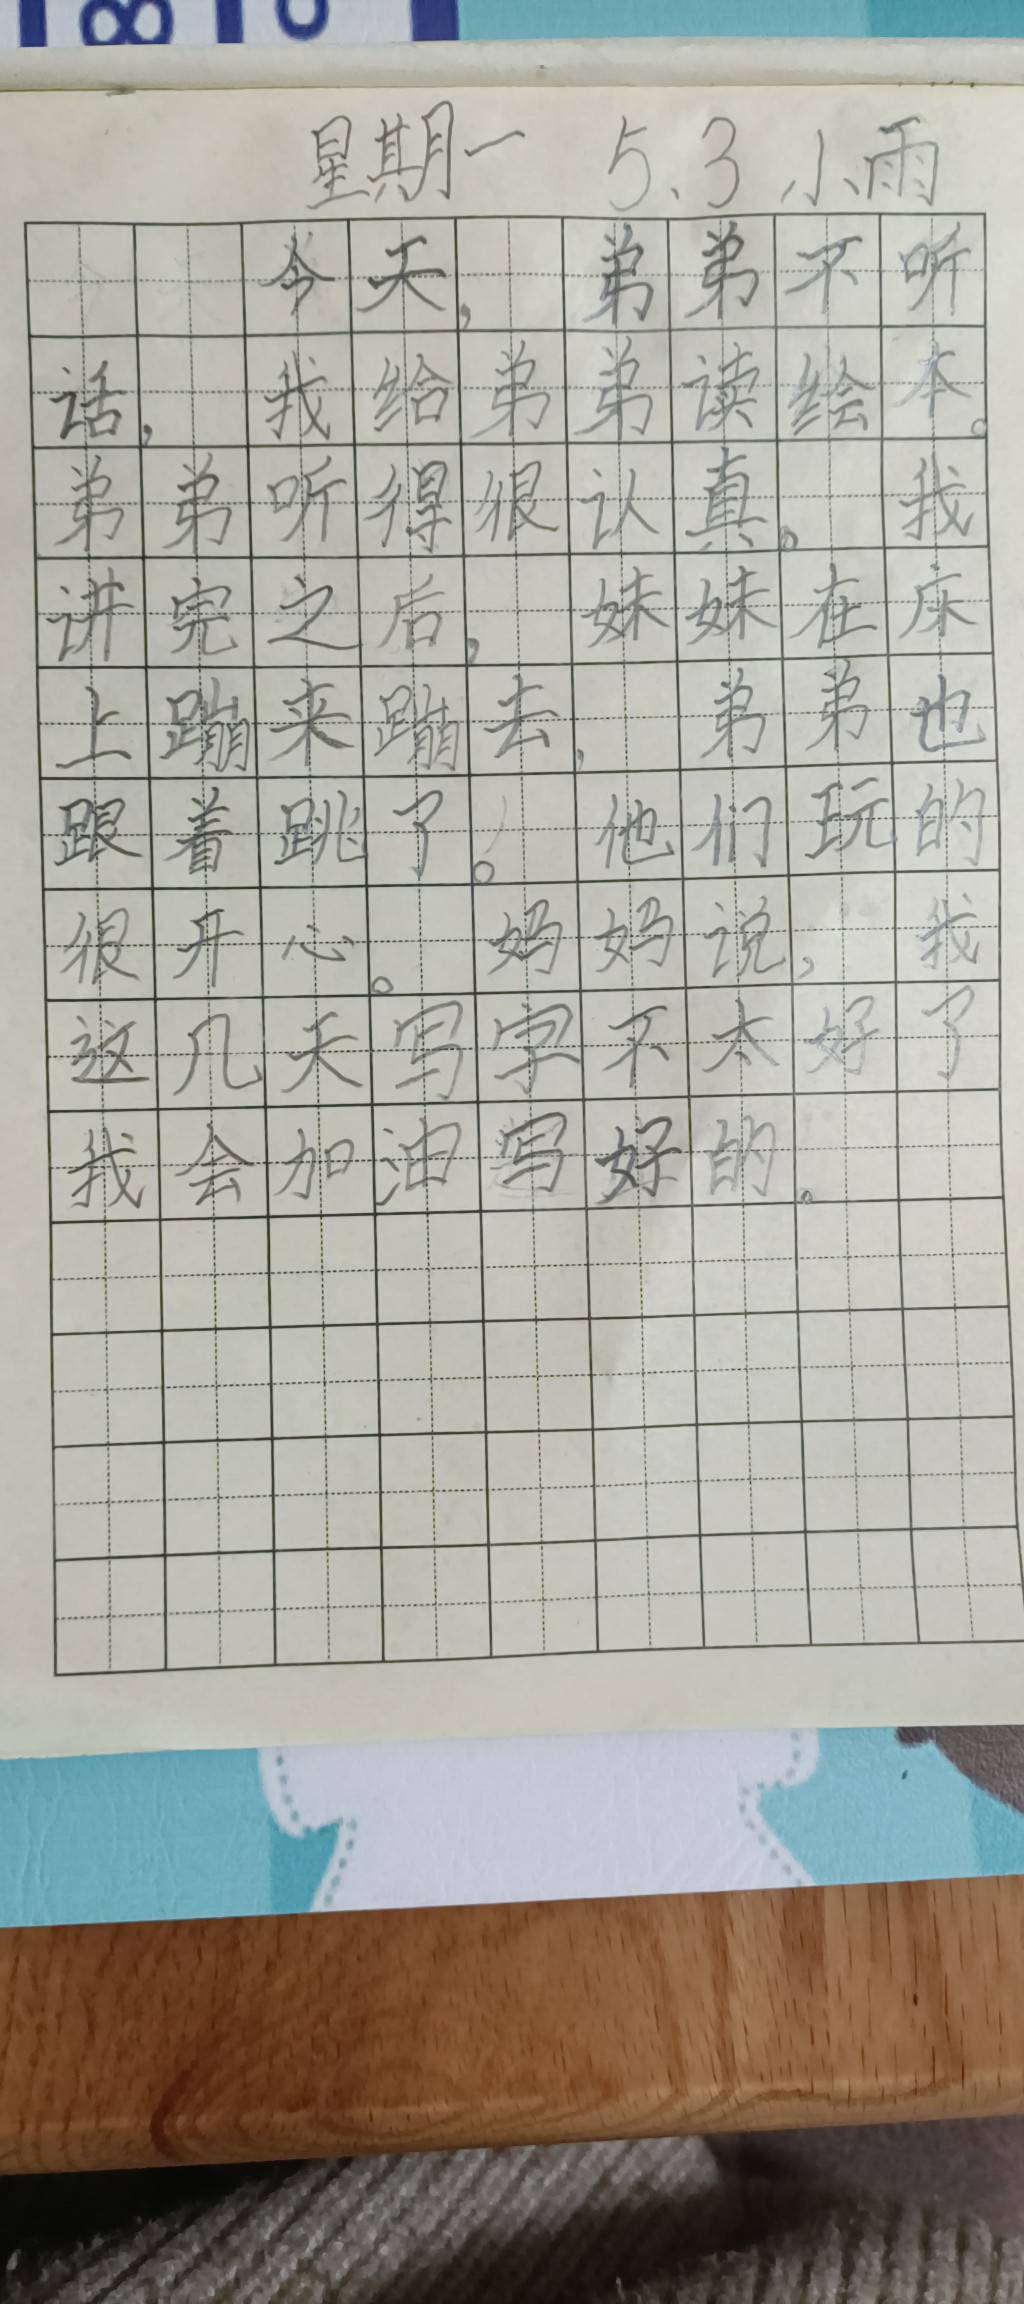 星期一 5.3 小雨
今天，弟弟不听
话，我给弟弟读绘本。
弟弟听得很认真。我
讲完之后，妹妹在床
上蹦来蹦去，弟弟也
跟着跳了。他们玩的
很开心。妈妈说，我
这几天写字不太好了
我会加油写好的。